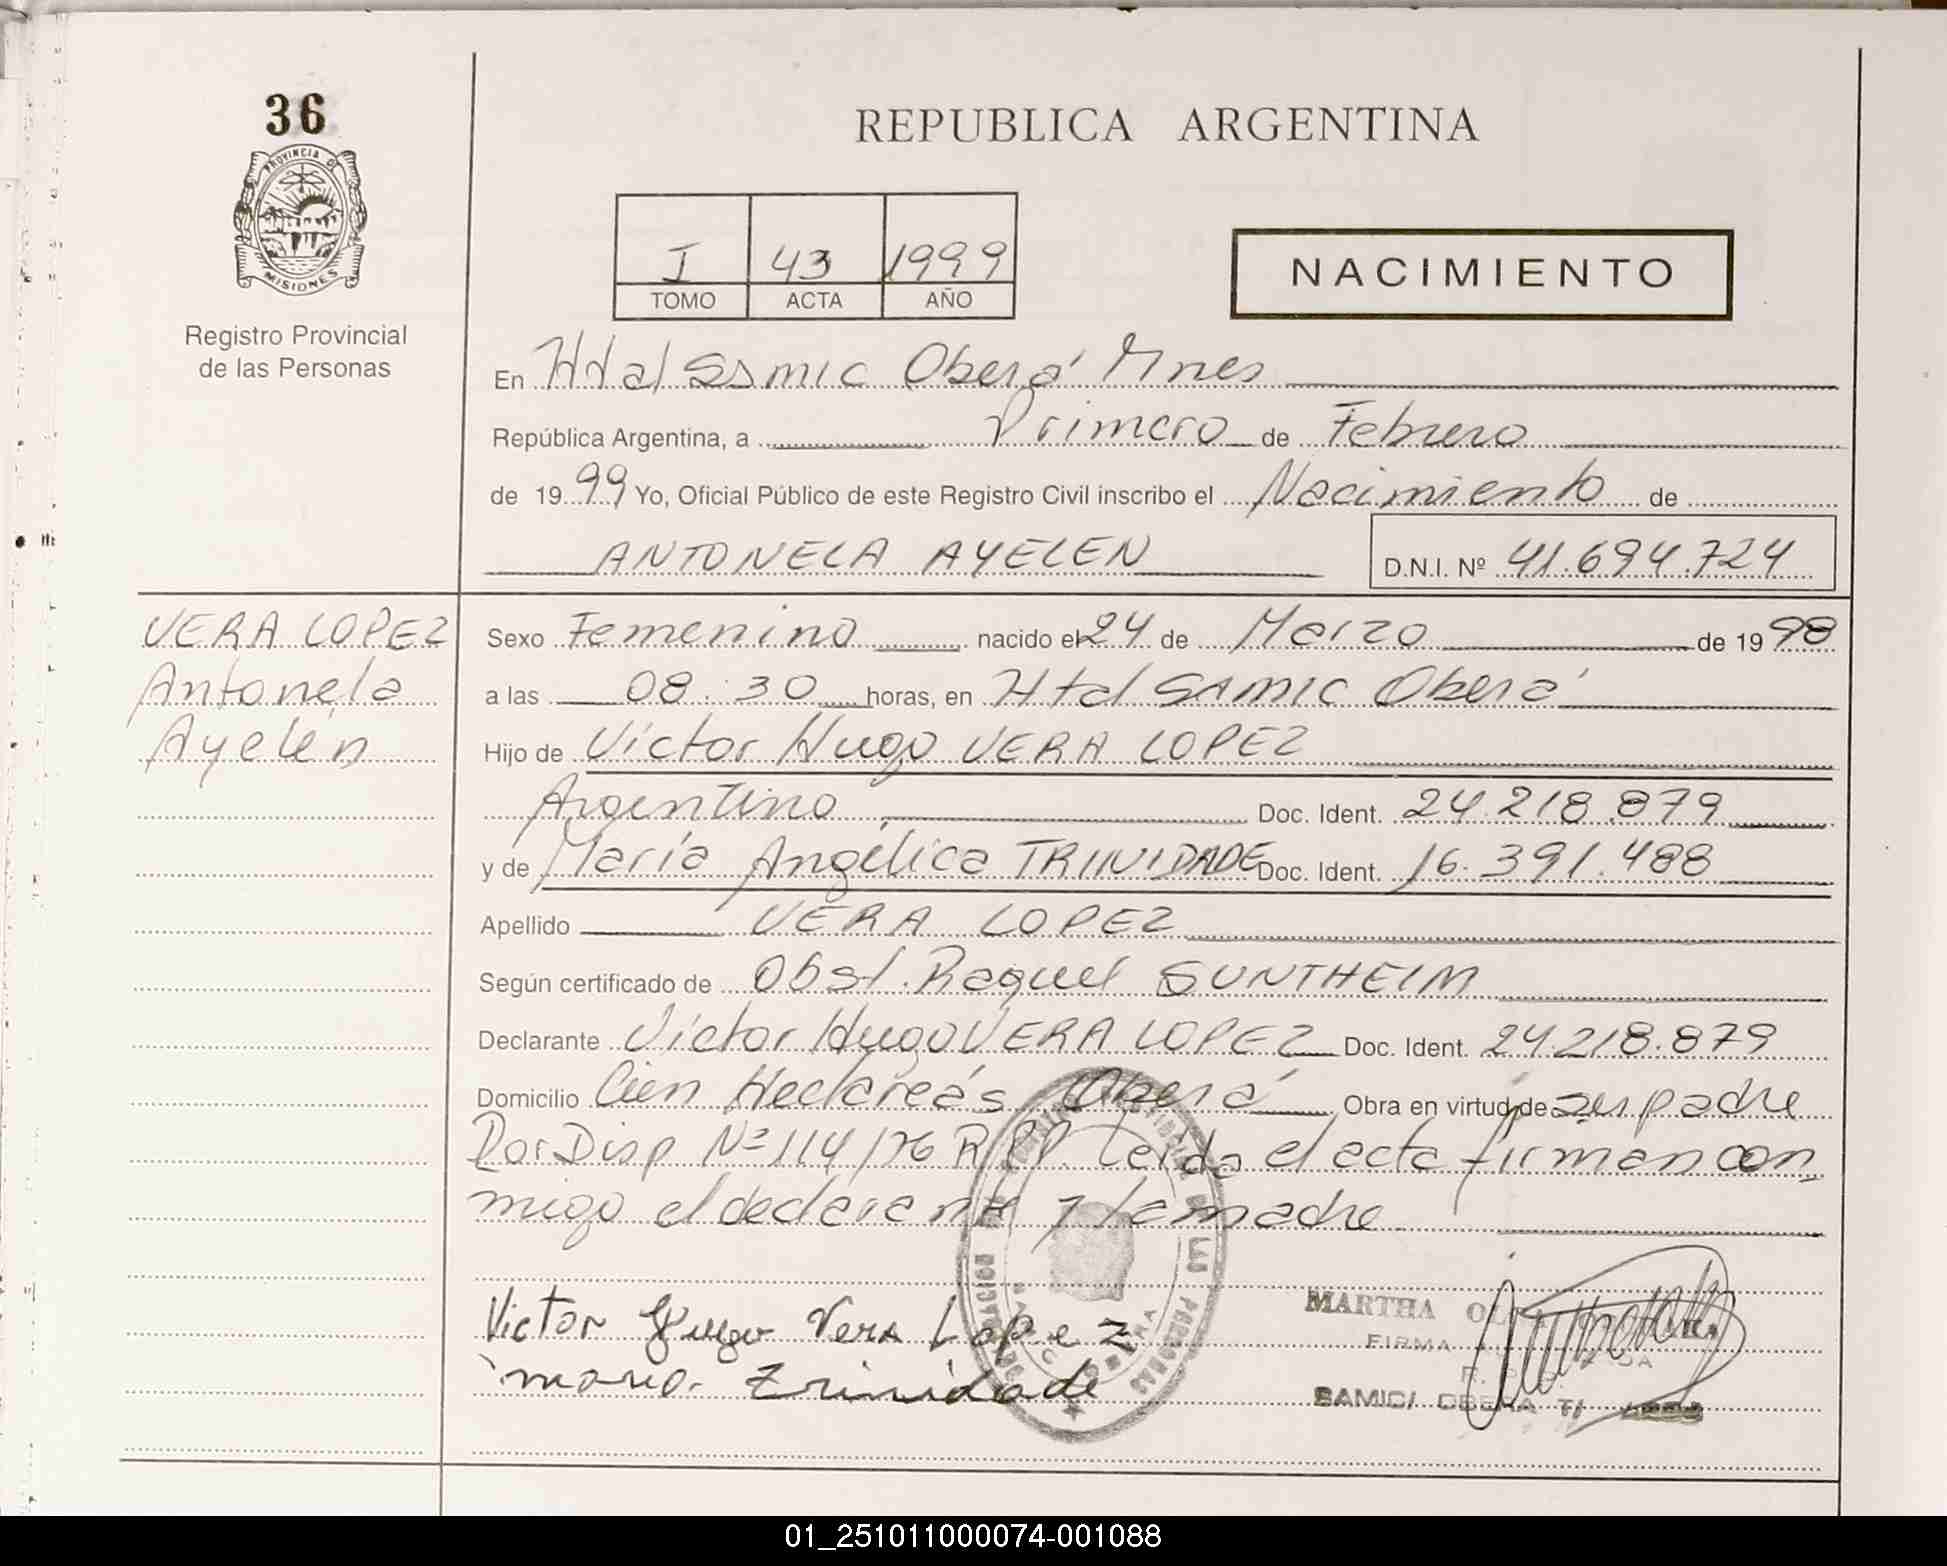 36
PROVINCIA DE
MISIONES
Registro Provincial
de las Personas
REPUBLICA ARGENTINA
I 43 1999
TOMO ACTA AÑO
NACIMIENTO
En Htal SAMIC Oberá Mnes
República Argentina, a Primero de Febrero
de 1999 Yo, Oficial Público de este Registro Civil inscribo el Nacimiento de
ANTONELA AYELEN D.N.I. Nº 41.694.724
VERA LOPEZ
Antonela
Ayelén
Sexo Femenino nacido el 24 de Marzo de 1998
a las 08:30 horas, en Htal SAMIC Oberá
Hijo de Víctor Hugo VERA LOPEZ
Argentino Doc. Ident. 24.218.879
y de María Angélica TRINIDADE Doc. Ident. 16.391.488
Apellido VERA LOPEZ
Según certificado de Obst. Raquel SUNTHEIM
Declarante Víctor Hugo VERA LOPEZ Doc. Ident. 24.218.879
Domicilio Cien Hectareás Oberá Obra en virtud de ser padre
Por Disp Nº 114/76 R.P.P. Leida el acta firman con
migo el declarante y la madre
Victor Hugo Vera Lopez
maria Trinidade
MARTHA
FIRMA
SAMIC/ OBERA
01_251011000074-001088